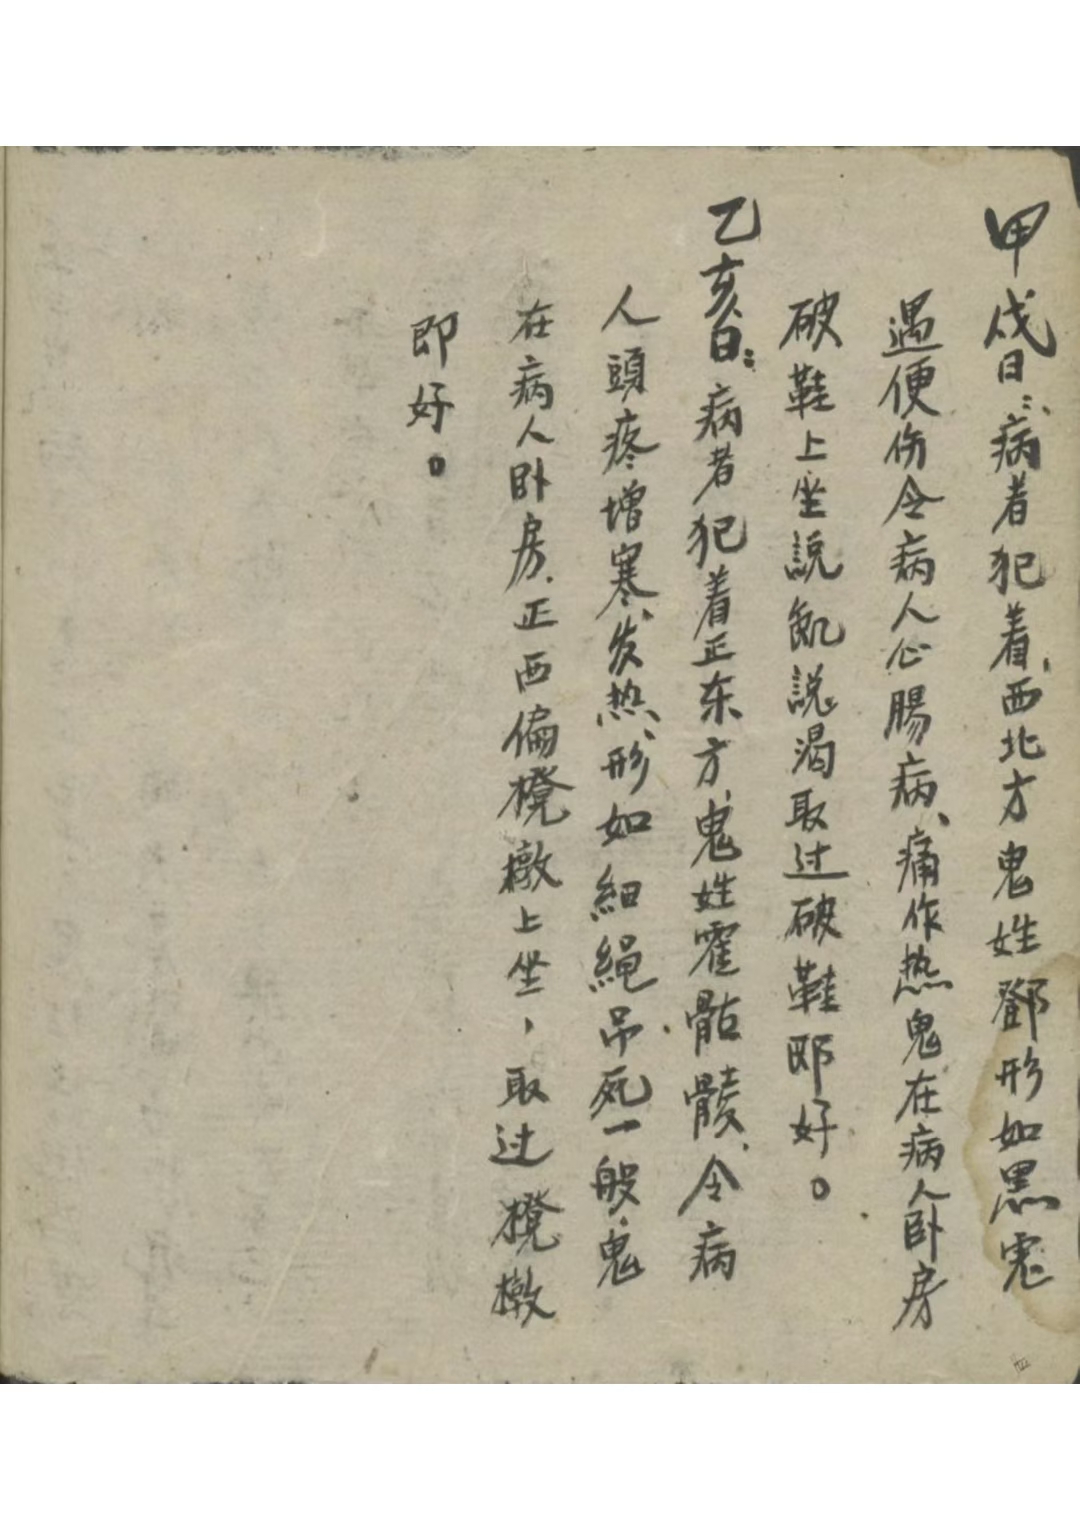 甲戌日：病者犯着、西北方鬼姓鄧形如黑
遇便伤令病人心腸病、痛作热鬼在病人卧房
破鞋上坐説飢説渴取过破鞋即好。
乙亥日：病者犯着正东方、鬼姓霍骷髅、令病
人頭疼增寒、发热、形如細绳吊死一般、鬼
在病人卧房、正西偏櫈橔上坐，取过櫈橔
即好。